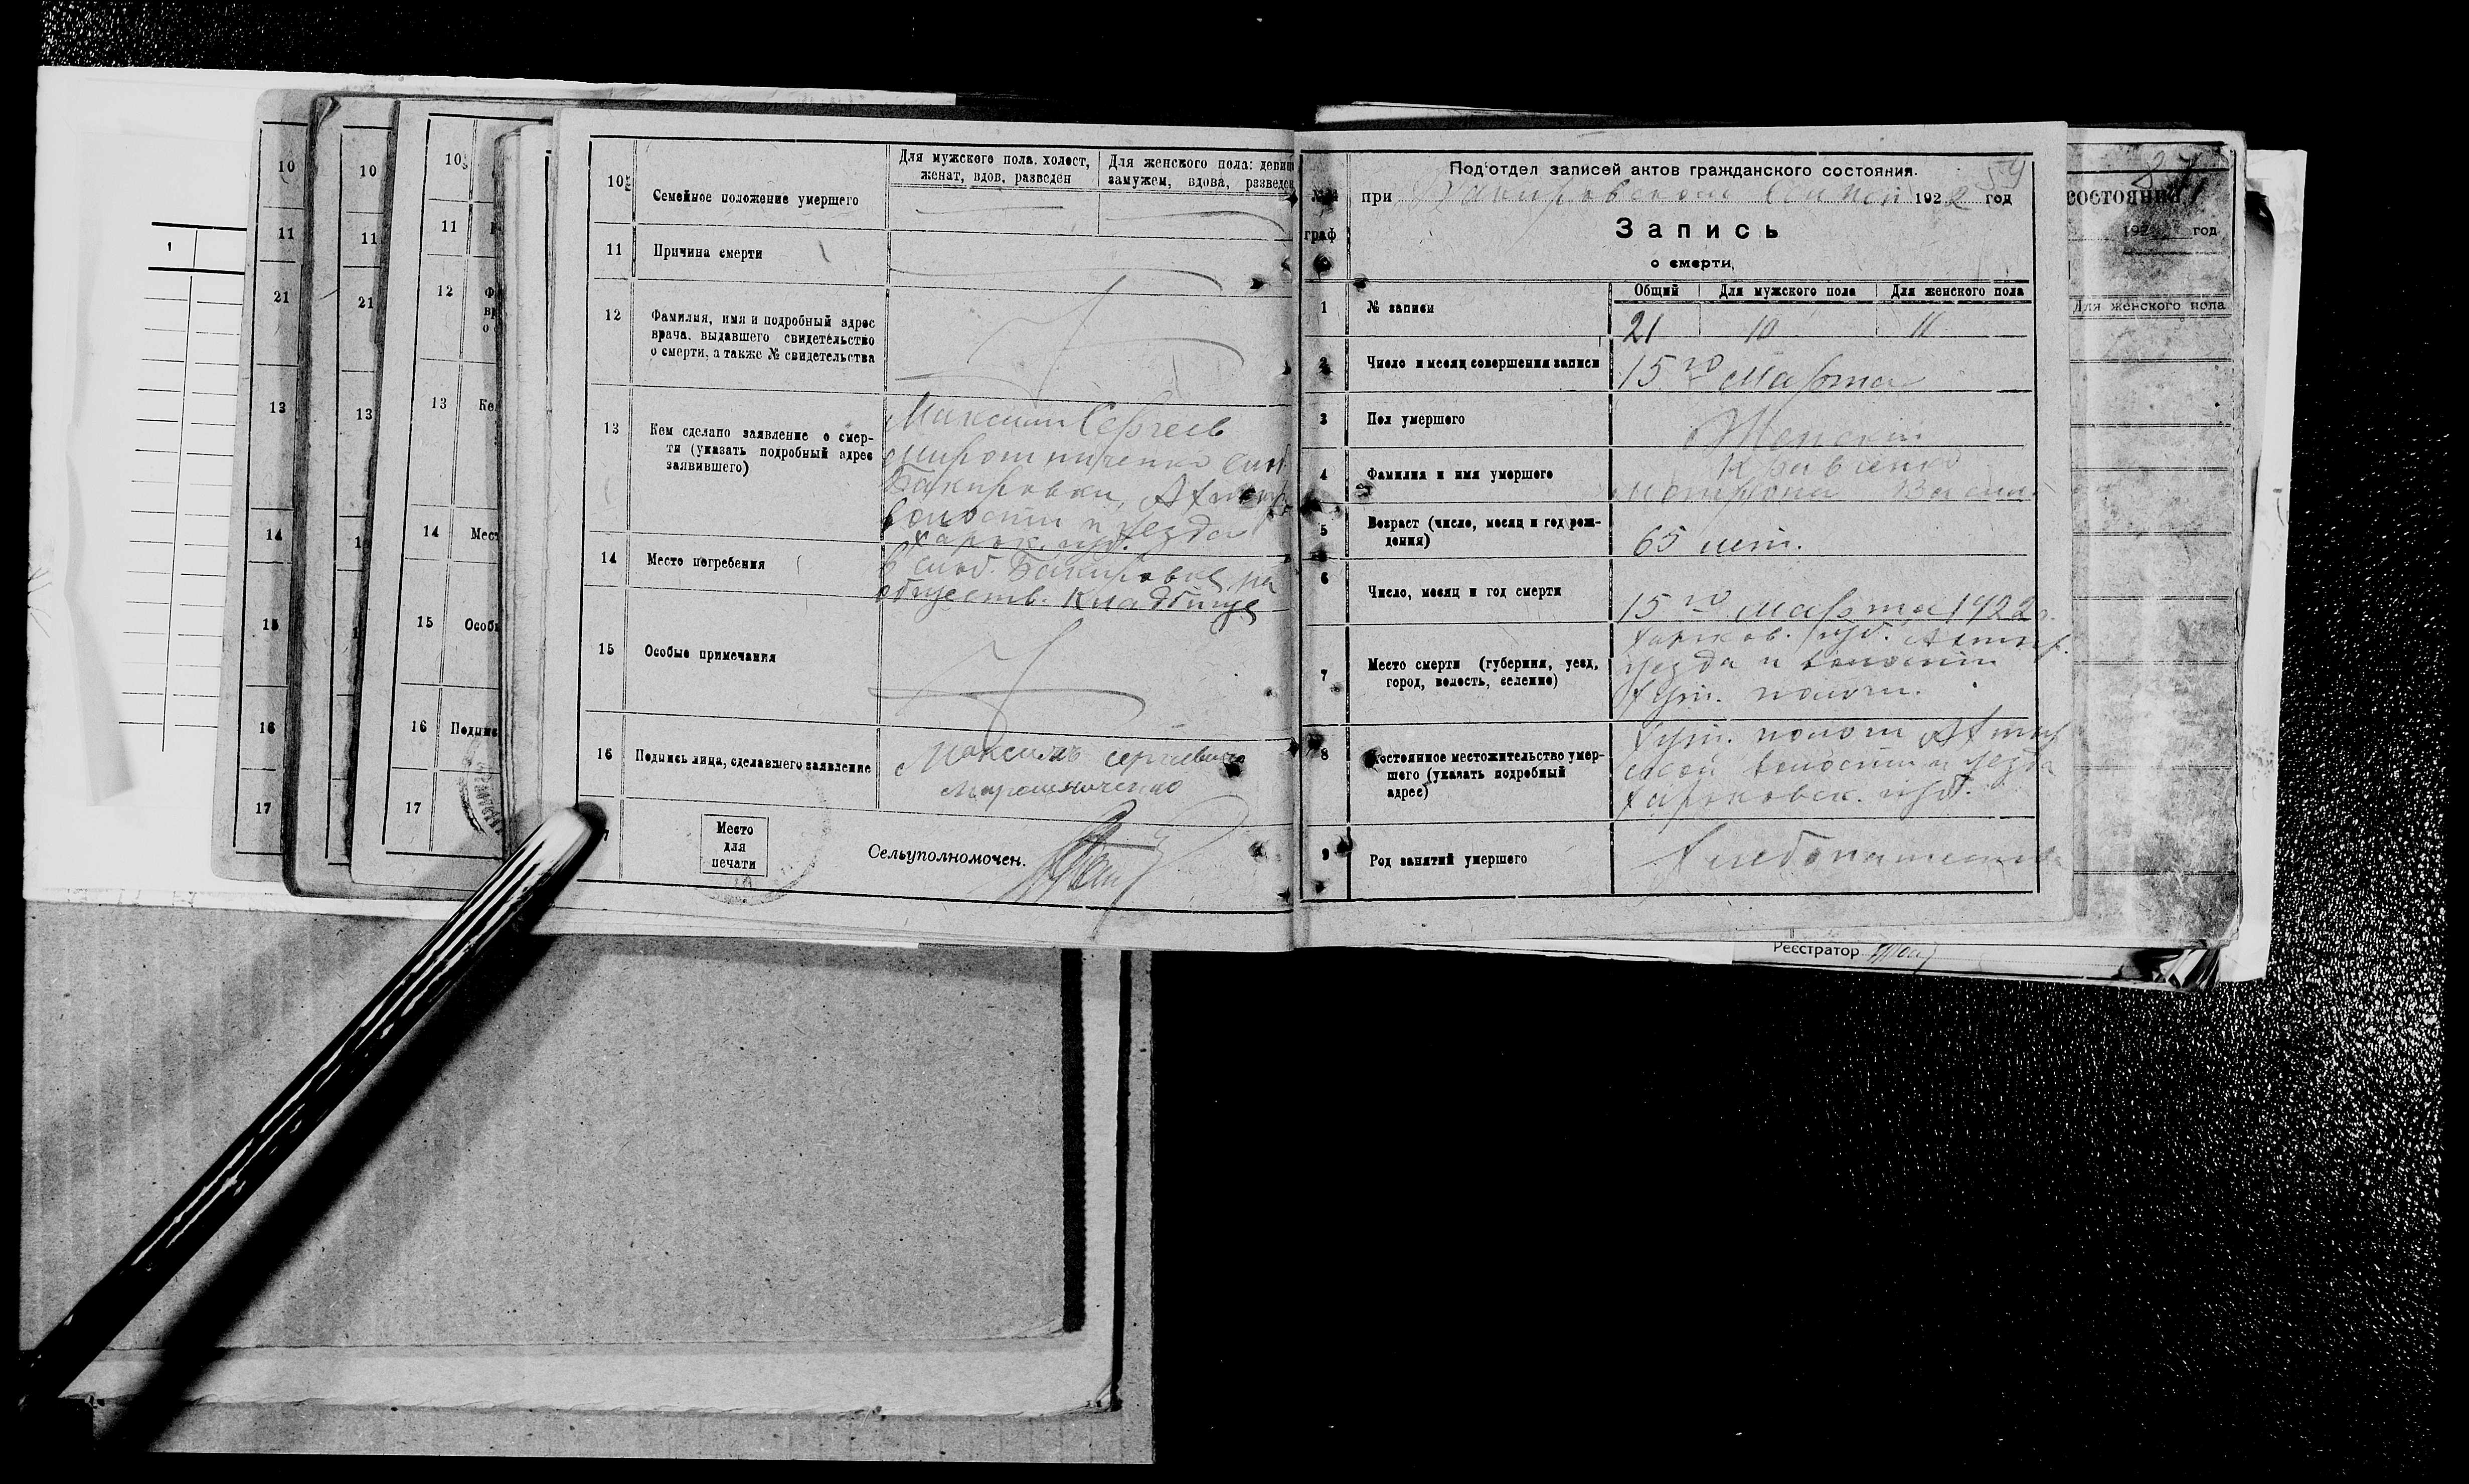 10
11
21
13
14
15
16
17
1
10
11
21
13
10
11
12
13
14
15
16
17
Ке
Мест
Особ
Подпис
10
Семейное положение умершего
Для мужского пола. холост, женат, вдов, разведен
Для женского пола: девиц замужем, вдова, разведен
11
Причина смерти
12
Фамилия, имя и подробный адрес
врача, выдавшего свидетельство
о смерти, а также № свидетельства
13
Кем сделано заявление о смер-
ти (указать подробный адрес
заявившего)
Максим Сергеев
Мирошниченко слоб
Бакировки, Ахтыр
волости и уезда
Харьк. губ.
14
Место погребения
В слоб. Бакировке, на
обществ. кладбище
15
Особые примечания
16
Подпись лица, сделавшего заявление
Максимъ сергиевичъ
Мирошниченко
Место
для
печати
Сельуполномочен.
Под'отдел записей актов гражданского состояния.
59
при Бакировском 1922 год
Запись
о смерти,
граф
1
№ записи
Общий
Для мужского пола
Для женского пола
21
10
11
2
Число и месяц совершения записи
15го Марта
3
Пол умершого
Женский
4
Фамилия и имя умершого
Кравченко
Матрона Васил.
5
Возраст (число, месяц и год рож-
дения)
65 лет.
6
Число, месяц и год смерти
15го марта 1922г.
7
Место смерти (губерния, уезд,
город, волость, селение)
Харьков. губ. Ахтыр.
уезда и волости
Хут.
8
Постоянное местожительство умер-
шого (указать подробный
адрес)
Хут. Ахтыр
ской волости и уезда
Харьковск. губ.
9
Род занятий умершого
Хлебопашество
87
состояния
192 год
Для женского пола
Реєстратор